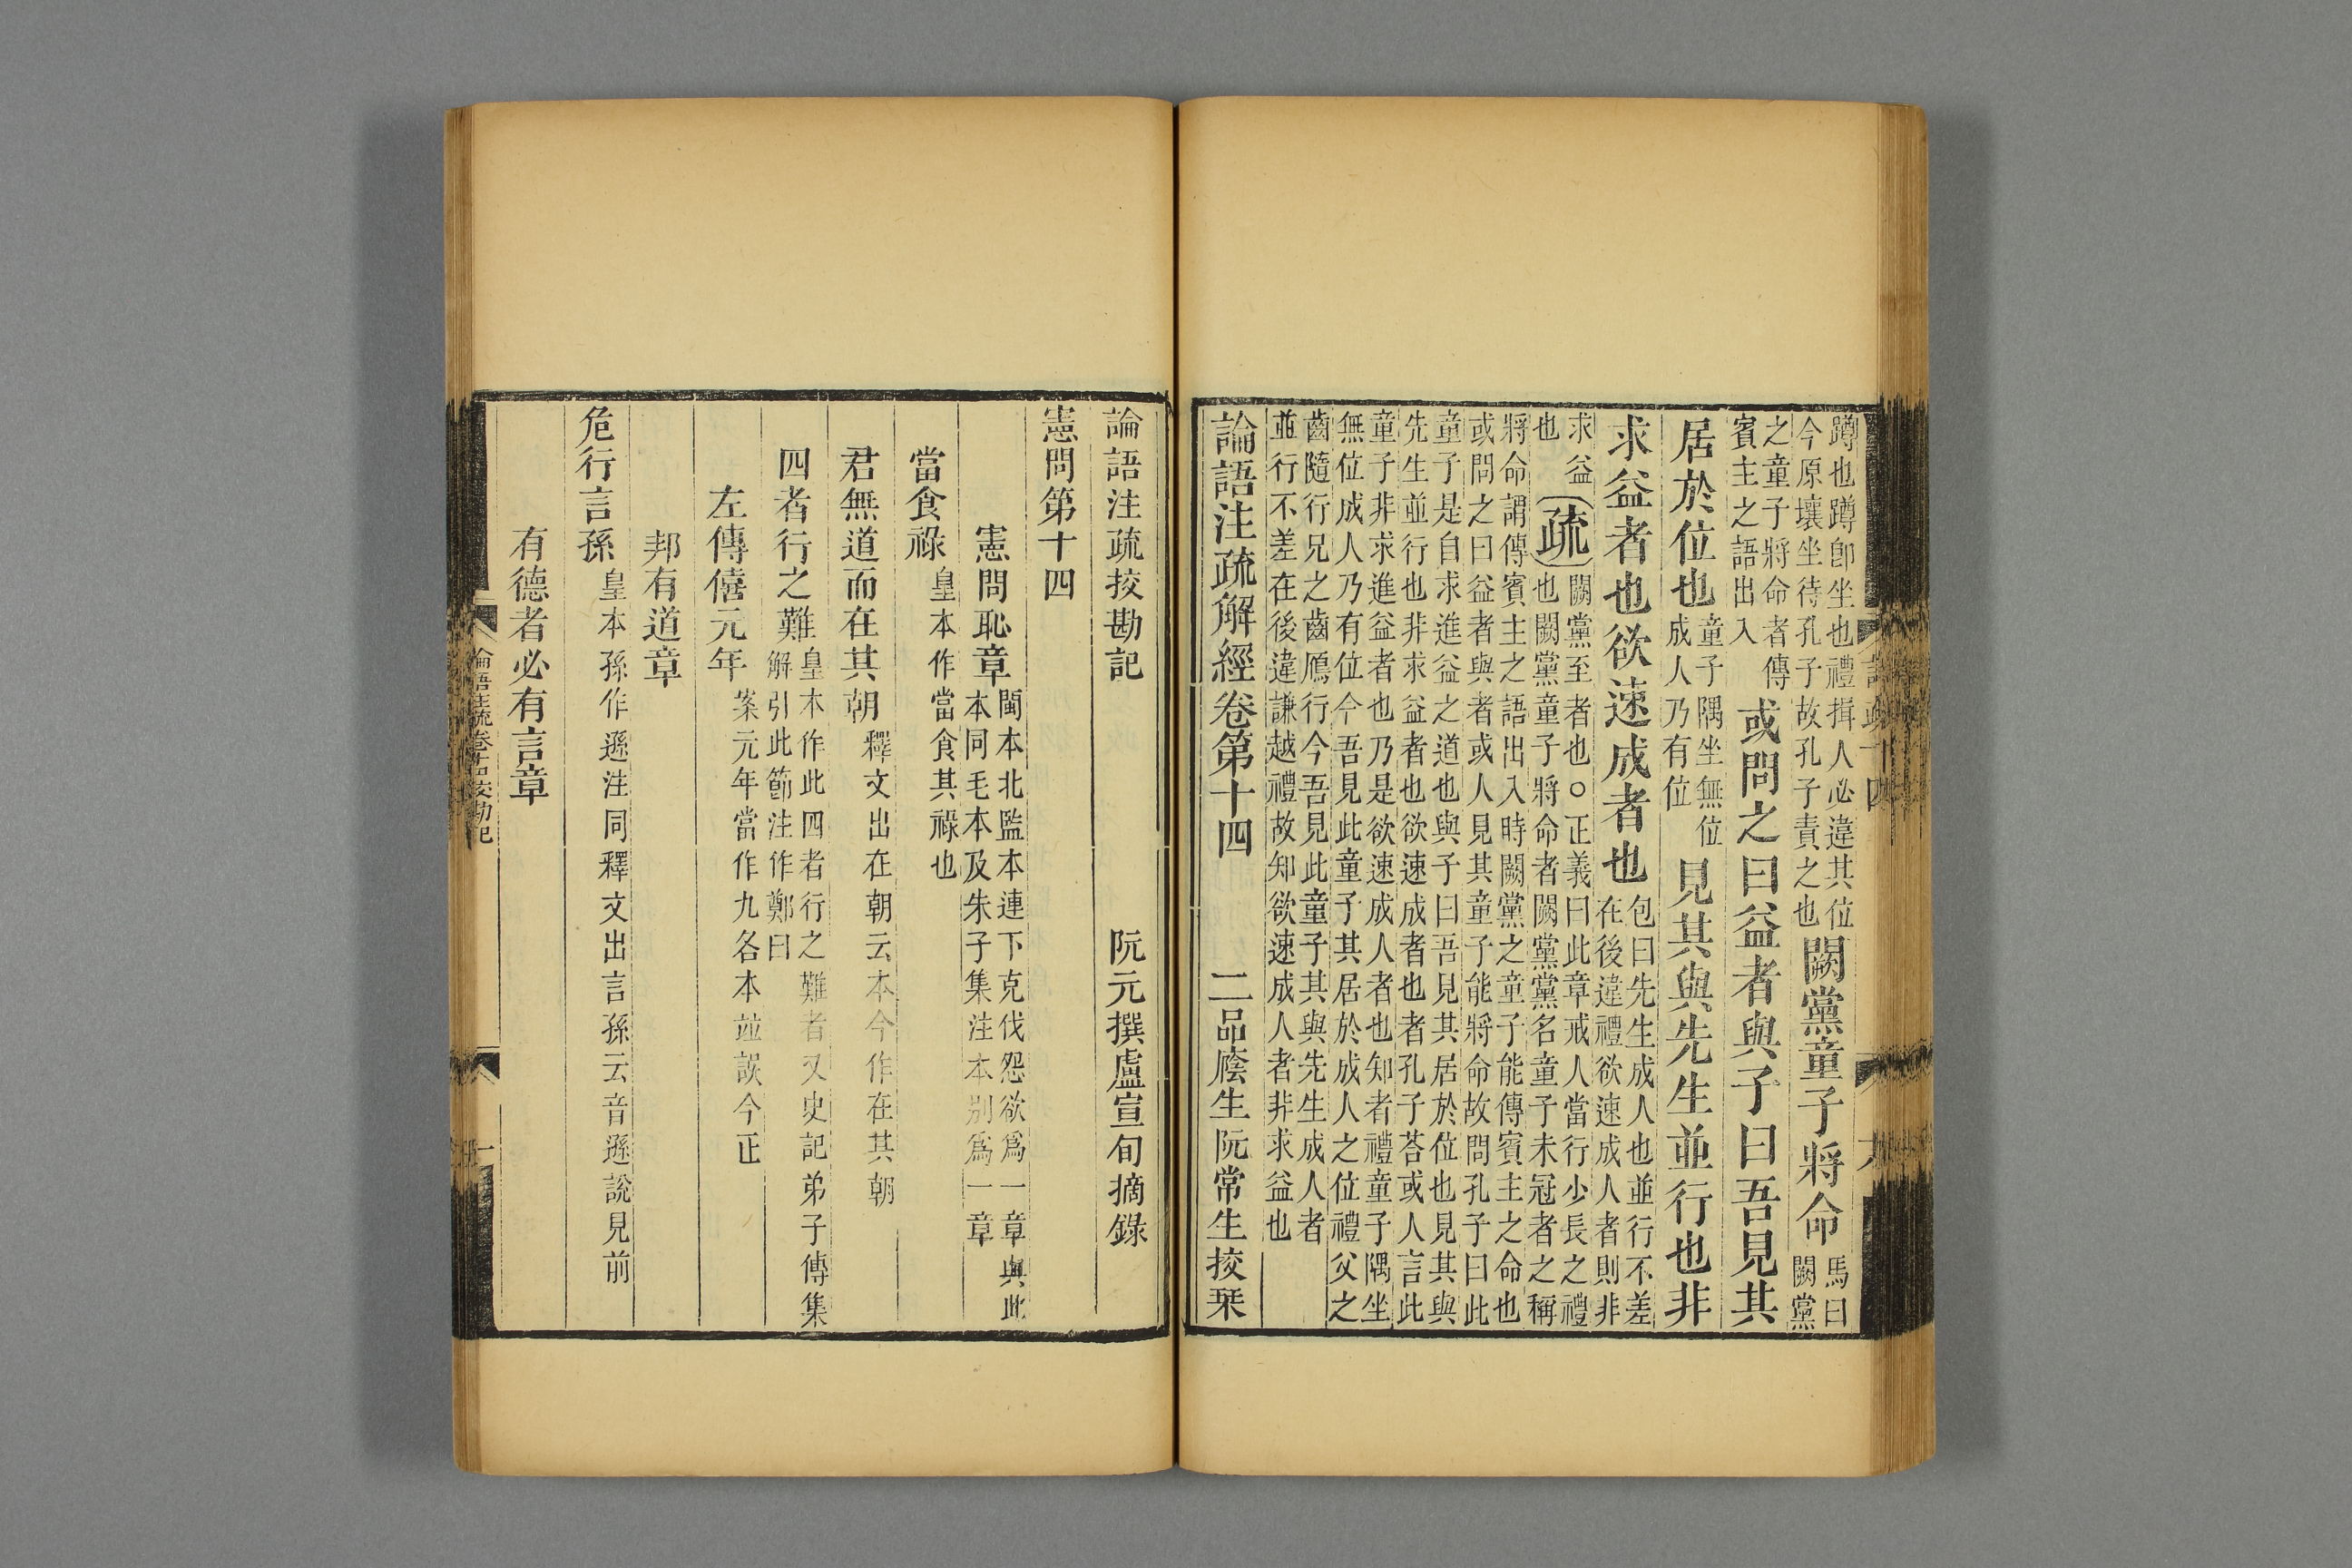 蹲也蹲卽坐也禮揖人必違其位
今原壤坐待孔子故孔子責之也
闕黨童子將命
馬曰
闕黨
之童子將命者傳
賓主之語出入
或問之曰益者與子曰吾見其
居於位也
童子隅坐無位
成人乃有位
見其與先生並行也非
求益者也欲速成者也
包曰先生成人也並行不差
在後違禮欲速成人者則非
求益
也
疏
闕黨至者也○正義曰此章戒人當行少長之禮
也闕黨童子將命者闕黨黨名童子未冠者之稱
將命謂傳賓主之語出入時闕黨之童子能傳賓主之命也
或問之曰益者與者或人見其童子能將命故問孔子曰此
童子是自求進益之道也與子曰吾見其居於位也見其與
先生並行也非求益者也欲速成者也者孔子荅或人言此
童子非求進益者也乃是欲速成人者也知者禮童子隅坐
無位成人乃有位今吾見此童子其居於成人之位禮父之
齒隨行兄之齒鴈行今吾見此童子其與先生成人者
並行不差在後違謙越禮故知欲速成人者非求益也
論語注疏解經卷第十四
二品廕生阮常生挍栞
論語注疏挍勘記
阮元撰盧宣旬摘錄
憲問第十四
憲問恥章
閩本北監本連下克伐怨欲爲一章與此
本同毛本及朱子集注本別爲一章
當食祿
皇本作當食其祿也
君無道而在其朝
釋文出在朝云本今作在其朝
四者行之難
皇本作此四者行之難者又史記弟子傳集
解引此節注作鄭曰
左傳僖元年
案元年當作九各本竝誤今正
邦有道章
危行言孫
皇本孫作遜注同釋文出言孫云音遜說見前
有德者必有言章
論語注疏卷十四校勘記